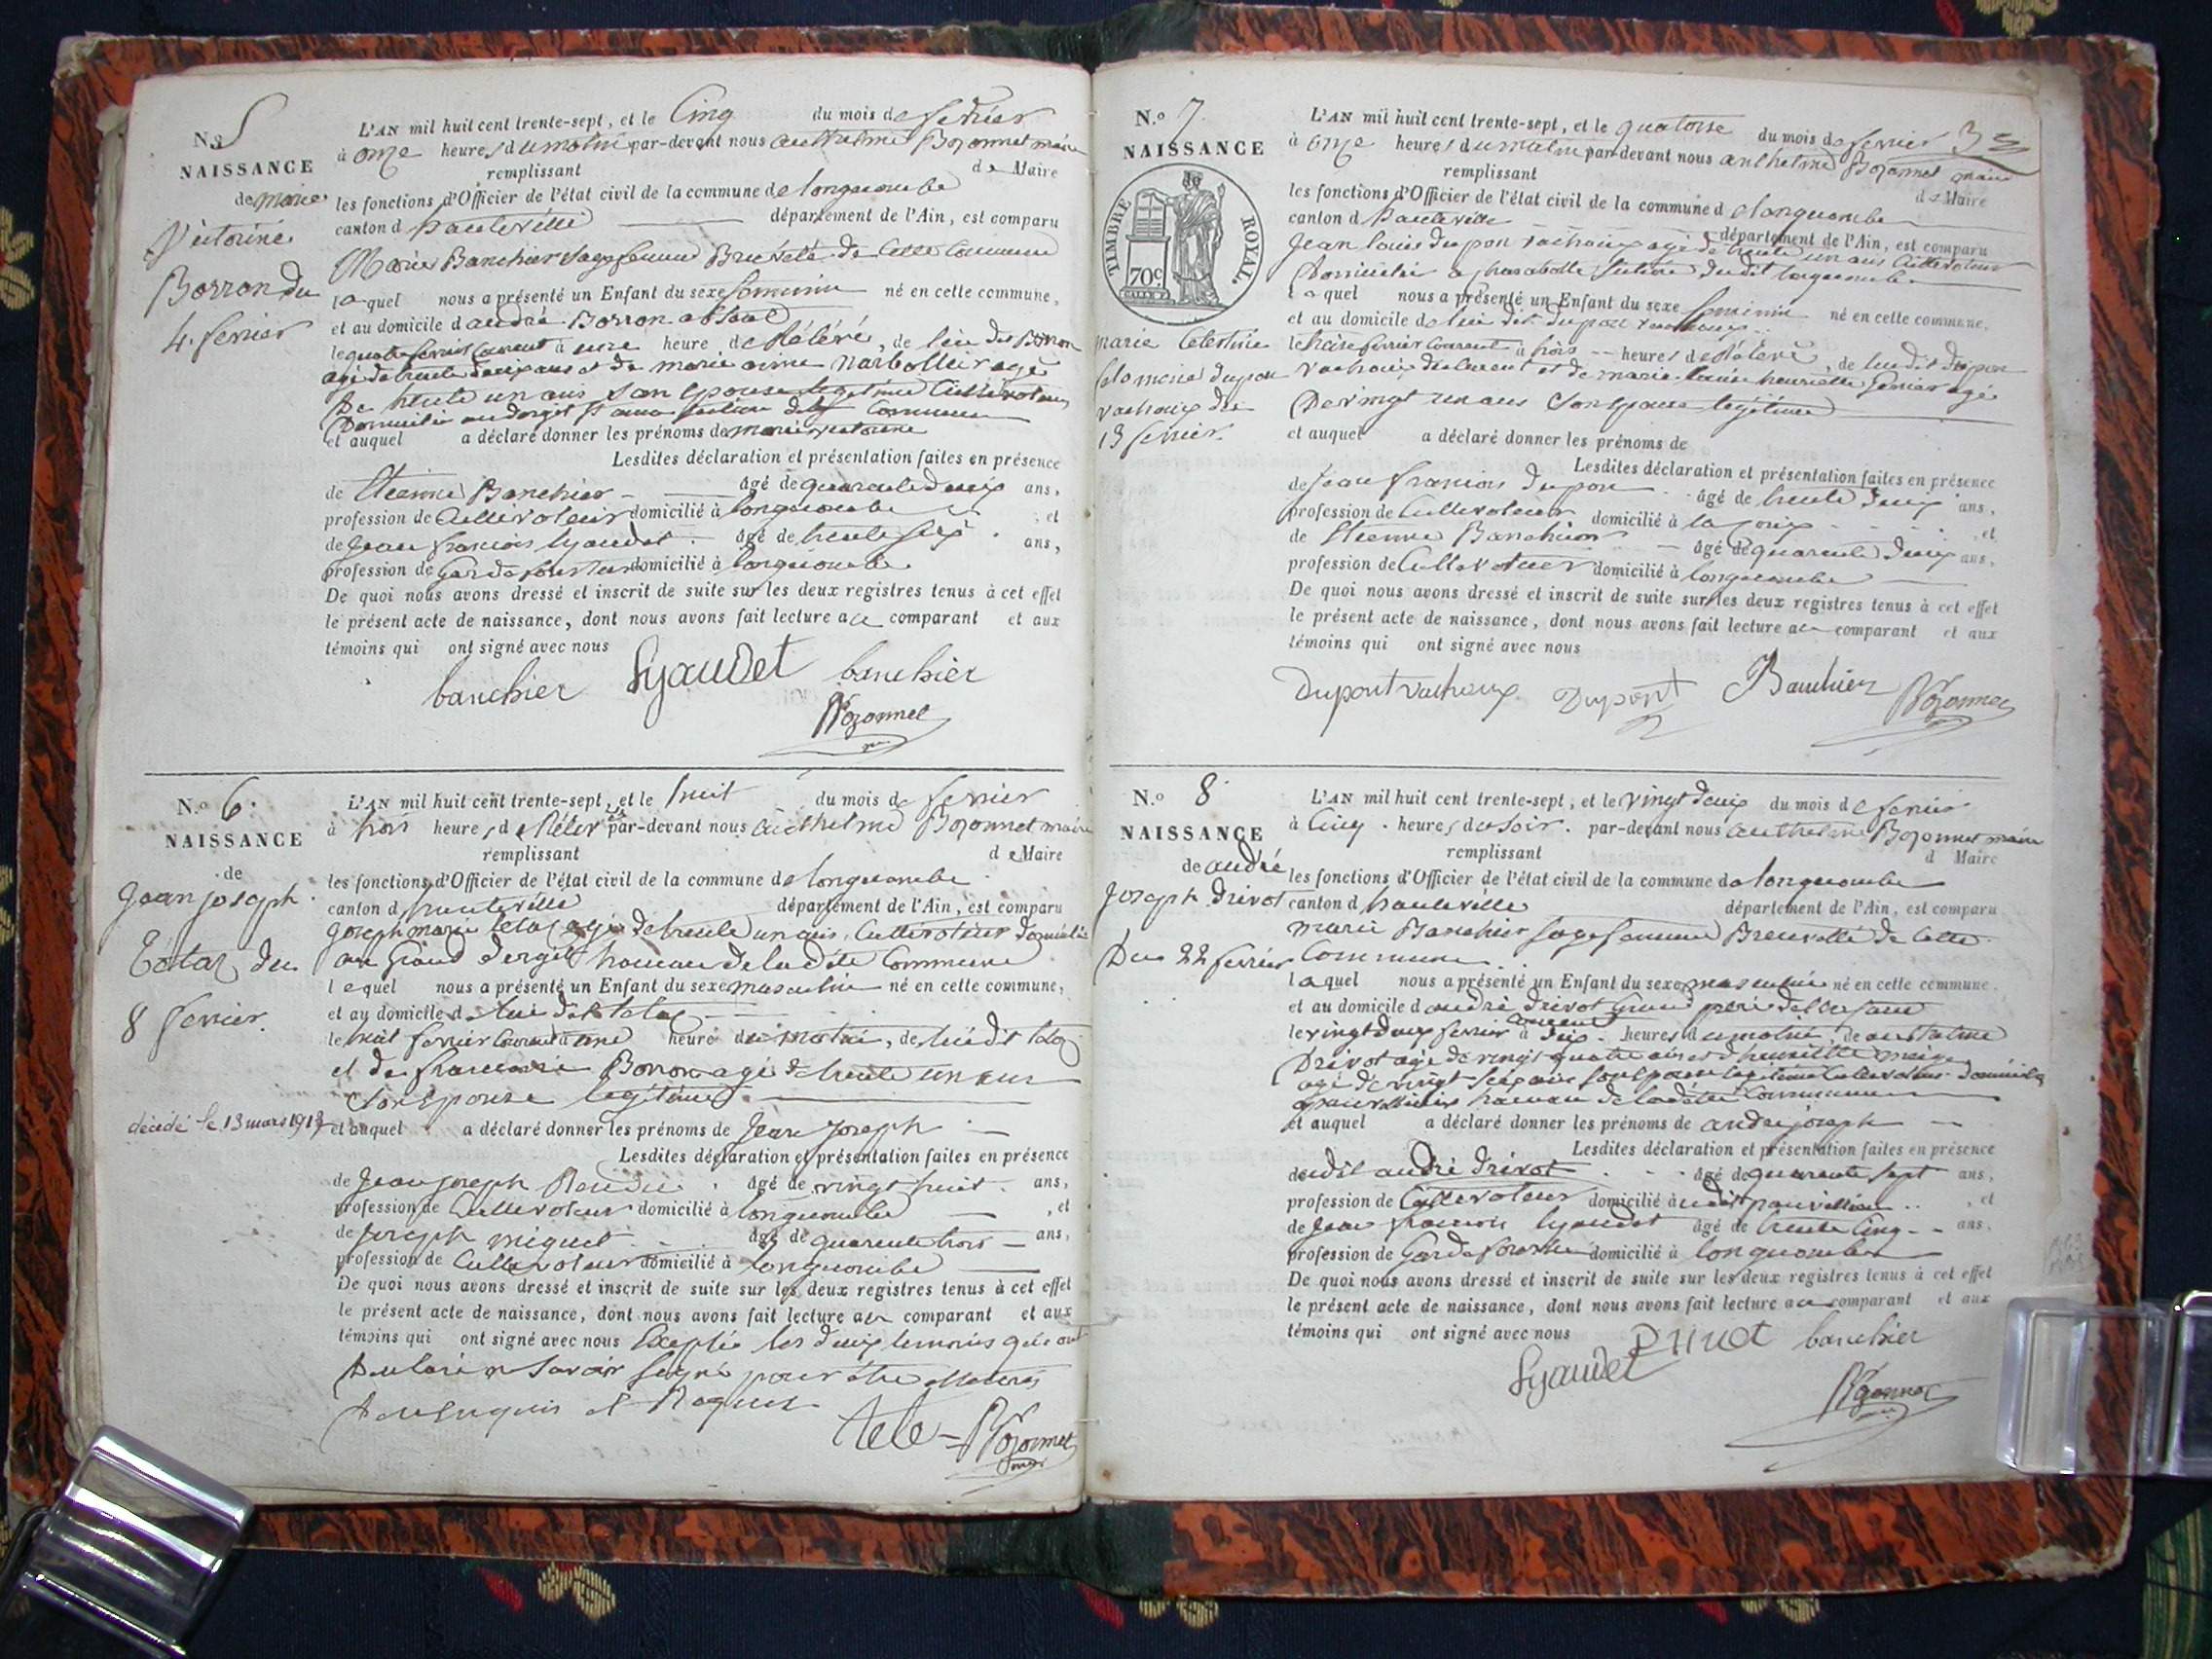 N.o 5
NAISSANCE
de marie
Victorine
Borron du
4. fevrier
L'AN mil huit cent trente-sept, et le Cinq du mois de fevrier
à onze heures du matin par-devant nous anthelme Bozonnet maire
remplissant de Maire
les fonctions d'Officier de l'état civil de la commune de longecombe
canton d hauteville département de l'Ain, est comparu
Marie Banchier sage femme de Cette Commune
laquel nous a présenté un Enfant du sexe feminin né en cette commune,
et au domicile d'andré Borron absent
le quatre fevrier courant à heure de relévé, de lui dit Borron
agé de trente deux ans et de marie aime narbollier agé
De trente un ans, son epouse legitime Cultivateurs
Domicilié section de Commune
et auquel a déclaré donner les prénoms de marie victorine
Lesdites déclaration et présentation faites en présence
de Etienne Banchier âgé de quarente deux ans,
profession de Cultivateur domicilié à longecombe et
de Jean françois lyaudet âgé de trente six ans,
profession de Garde forestier domicilié à longecombe
De quoi nous avons dressé et inscrit de suite sur les deux registres tenus à cet effet
le présent acte de naissance, dont nous avons fait lecture au comparant et aux
témoins qui ont signé avec nous
banchier Lyaudet banchier
Bozonnet
N.o 6.
NAISSANCE
de
Jean joseph
Tetaz du
8 fevrier.
L'AN mil huit cent trente-sept, et le huit du mois de fevrier
à trois heures de relevé par-devant nous anthelme Bozonnet maire
remplissant de Maire
les fonctions d'Officier de l'état civil de la commune de longecombe
canton d hauteville département de l'Ain, est comparu
joseph marie tetaz agé de trente un ans, Cultivateur domicilié
au Grand dergit hameau de ladite Commune
lequel nous a présenté un Enfant du sexe masculin né en cette commune,
et au domicile de lui dit tetaz
le huit fevrier courant à une heure du matin, de lui dit tetaz
et de Borron agé de trente un ans
son Epouse legitime
décédé le 13 mars 1917
et auquel a déclaré donner les prénoms de Jean Joseph
Lesdites déclaration et présentation faites en présence
de Jean joseph âgé de vingt huit ans,
profession de Cultivateur domicilié à longecombe , et
de joseph miguet âgé de quarente trois ans,
profession de Cultivateur domicilié à longecombe
De quoi nous avons dressé et inscrit de suite sur les deux registres tenus à cet effet
le présent acte de naissance, dont nous avons fait lecture au comparant et aux
témoins qui ont signé avec nous Excepté les deux temoins qui ont
Declaré ne savoir signé pour être illetrés
De ce enquis et Requis
tetaz Bozonnet
N.o 7
NAISSANCE
TIMBRE ROYAL.
70c
marie Celestine
felomene dupon
vachoux du
13 fevrier.
L'AN mil huit cent trente-sept, et le quatorse du mois de fevrier 3
à onze heures du matin par-devant nous anthelme Bozonnet maire
remplissant de Maire
les fonctions d'Officier de l'état civil de la commune d longecombe
canton d hauteville département de l'Ain, est comparu
Jean louis dupon vachoux agé de trente un ans Cultivateur
Domicilié a section dudit longecombe
laquel nous a présenté un Enfant du sexe feminin né en cette commune,
et au domicile de lui dit dupon vachoux
le treise fevrier courant à trois heures de relevé, de lui dit dupon
vachoux declarent et de marie louise henriette Genier agé
De vingt un ans son Epouse legitime
et auquel a déclaré donner les prénoms de
Lesdites déclaration et présentation faites en présence
de Jean francois dupon âgé de trente deux ans,
profession de Cultivateur domicilié à la joux et
de Etienne Banchier âgé de quarente deux ans,
profession de Cultivateur domicilié à longecombe
De quoi nous avons dressé et inscrit de suite sur les deux registres tenus à cet effet
le présent acte de naissance, dont nous avons fait lecture au comparant et aux
témoins qui ont signé avec nous
Dupont vachoux Dupont Banchier Bozonnet
N.o 8
NAISSANCE
de andré
Joseph Drivot
Du 22 fevrier
L'AN mil huit cent trente-sept, et le vingt deux du mois de fevrier
à Cinq heures du soir. par-devant nous anthelme Bozonnet maire
remplissant d Maire
les fonctions d'Officier de l'état civil de la commune de longecombe
canton d hauteville département de l'Ain, est comparu
marie Banchier sage femme de Cette
Commune
laquel nous a présenté un Enfant du sexe masculin né en cette commune,
et au domicile d'andré drivot Grand pere de l'enfant
le vingt deux fevrier courant à dix heures du matin, de anthelme
Drivot agé de vingt quatre ans et d'
agé de vingt ans son epouse legitime Cultivateurs domicilié
hameau de ladite Commune
et auquel a déclaré donner les prénoms de andré joseph
Lesdites déclaration et présentation faites en présence
dudit andré drivot âgé de quarente sept ans,
profession de Cultivateur domicilié à , et
de Jean francois lyaudet âgé de trente Cinq ans,
profession de Garde forestier domicilié à longecombe
De quoi nous avons dressé et inscrit de suite sur les deux registres tenus à cet effet
le présent acte de naissance, dont nous avons fait lecture au comparant et aux
témoins qui ont signé avec nous
Drivot banchier
Lyaudet
Bozonnet